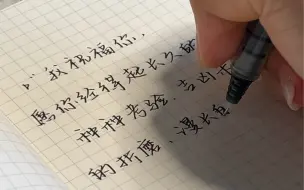 “我祝福你,
愿你经得起长久的
种种考验、吉凶
的折磨、漫长